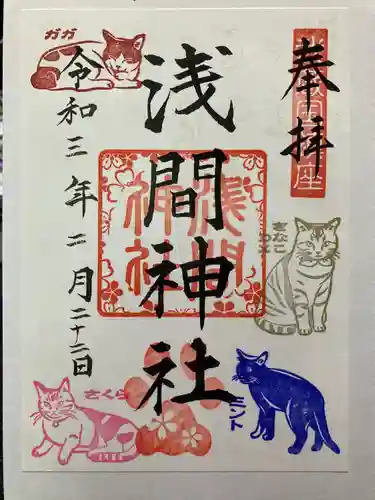 奉拝
浅間神社
令和三年二月二十二日
浅間
神社
ガガ
きなこ
ミント
さくら